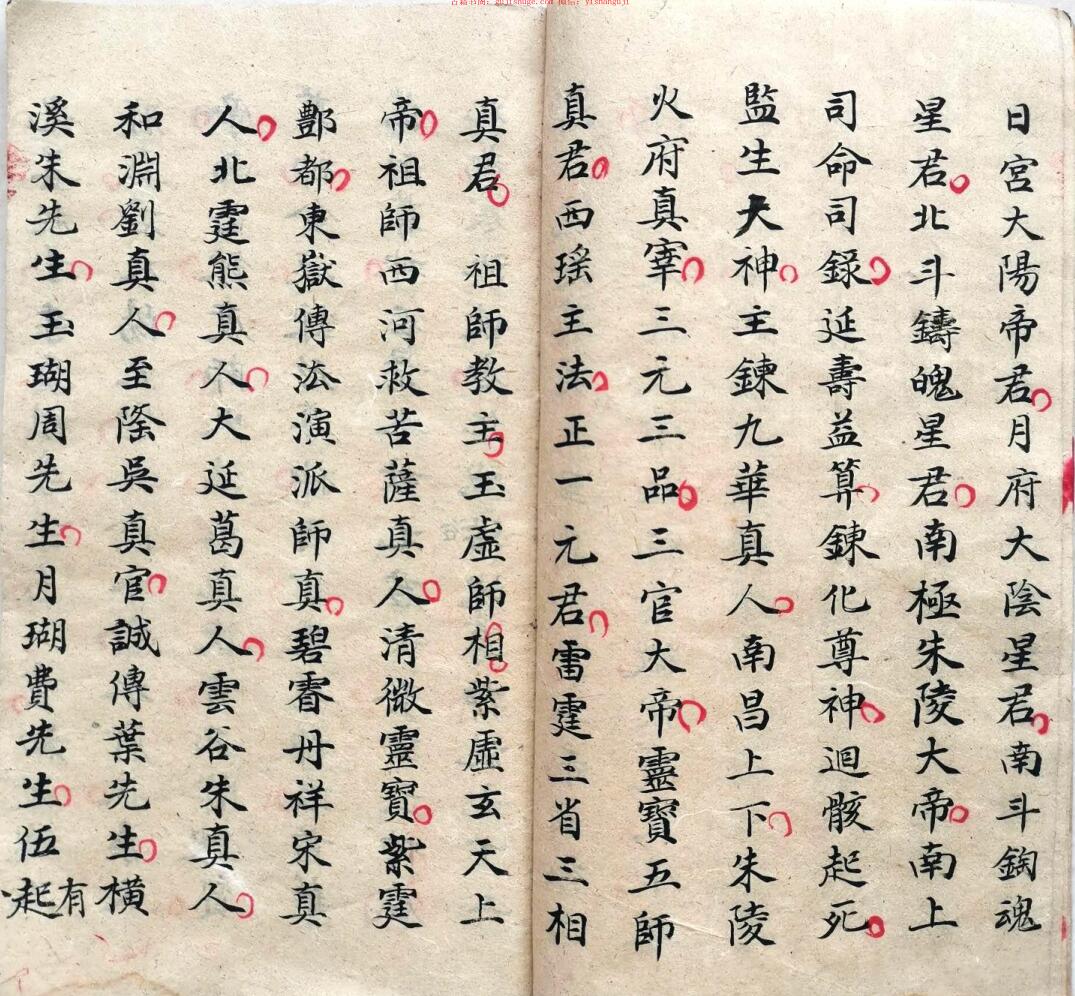 古籍书阁：gujishuge.com 微信：yishanguji
日宮大陽帝君月府大陰星君南斗鈎魂
星君北斗鑄魄星君南極朱陵大帝南上
司命司錄延壽益算鍊化尊神迴骸起死
監生大神主鍊九華真人南昌上下朱陵
火府真宰三元三品三官大帝靈寶五師
真君西瑶主法正一元君雷霆三省三相
真君　祖師教主玉虛師相紫虛玄天上
帝祖師西河救苦薩真人清微靈寶紫霆
酆都東嶽傳法演派師真碧睿丹祥宋真
人北霆熊真人大延葛真人雲谷朱真人
和淵劉真人至隂吳真官誠傳葉先生橫
溪朱先生玉瑚周先生月瑚費先生伍起有